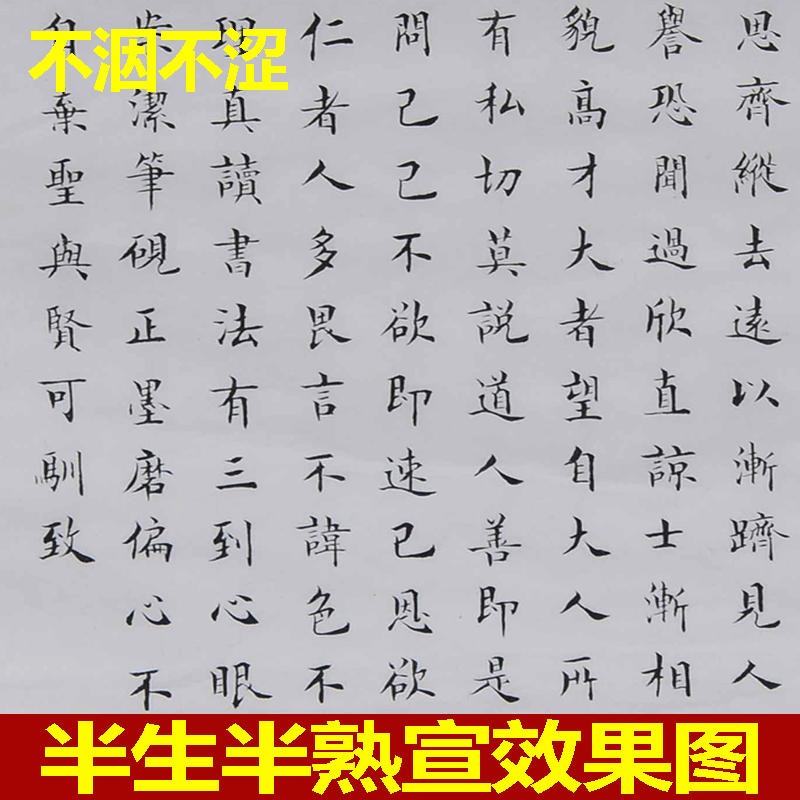 不洇不涩
思齊縱去遠以漸躋見人
譽恐聞過欣直諒士漸相
貌高才大者望自大人所
有私切莫説道人善即是
問己己不欲即速已恩欲
仁者人多畏言不諱色不
理真讀書法有三到心眼
潔筆硯正墨磨偏心不
自棄聖與賢可馴致
半生半熟宣效果图